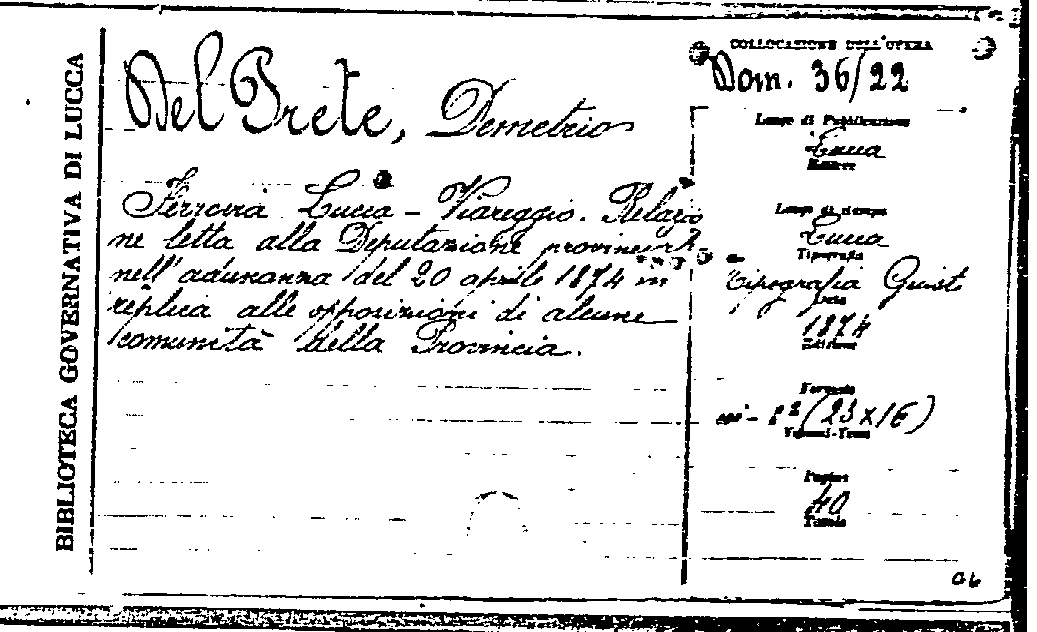 BIBLIOTECA GOVERNATIVA DI LUCCA
Del Prete, Demetrio
Ferrovia Lucca - Viareggio. Relazio
ne letta alla Deputazione provinciale
nell'adunanza del 20 aprile 1874 in
replica alle opposizioni di alcune
comunità della Provincia.
COLLOCAZIONE DELL'OPERA
Dom. 36/22
Luogo di Pubblicazione
Lucca
Luogo di stampa
Lucca
Tipografia
Tipografia Giusti
1874
Edizione
Formato
(23x16)
Volumi-Tomi
Pagine
40
Tavole